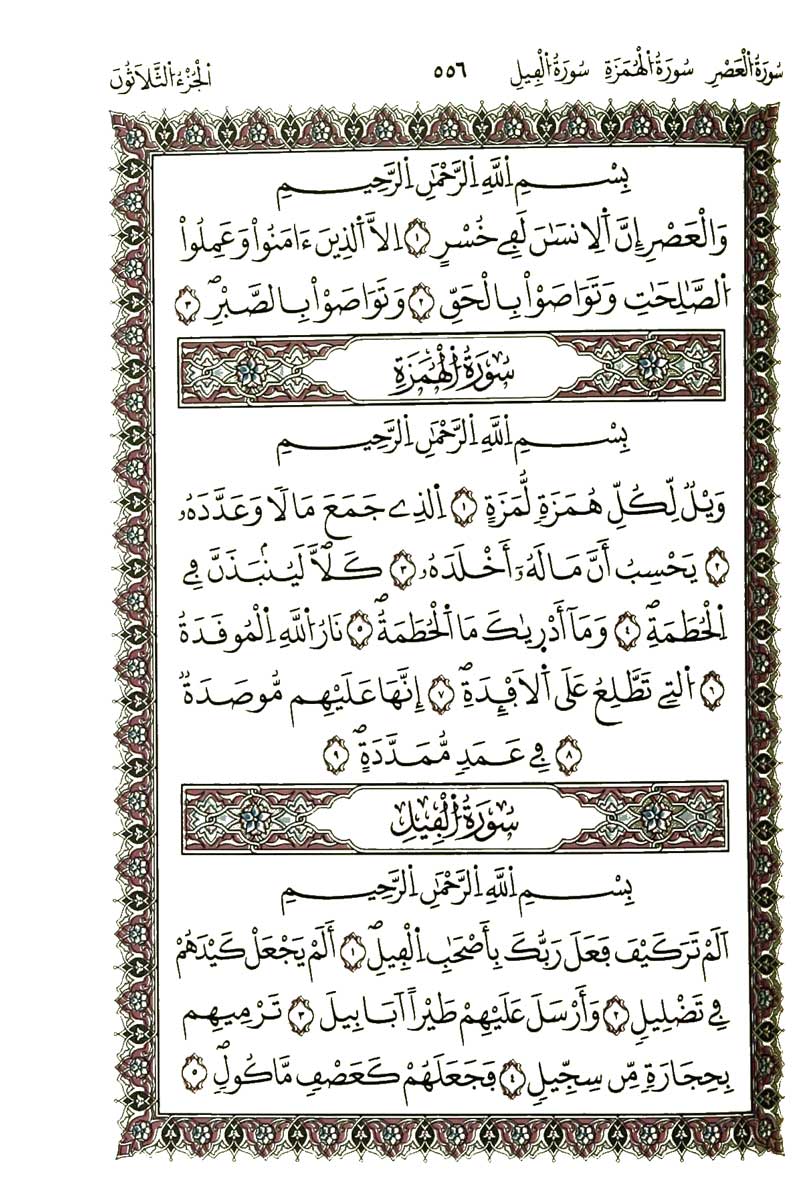 سُورَةُ الْعَصْرِ سُورَةُ الْهُمَزَةِ سُورَةُ الْفِيلِ ٥٥٦ الْجُزْءُ الثَّلاَثُونَ
بِسْمِ اِللَّهِ اِلرَّحْمَٰنِ اِلرَّحِيمِ
وَالْعَصْرِ إِنَّ اَلِانسَٰنَ لَفِے خُسْرٍ ١ اِلاَّ اَلذِينَ ءَامَنُواْ وَعَمِلُواْ
اُلصَّٰلِحَٰتِ وَتَوَاصَوْاْ بِالْحَقِّ ٢ وَتَوَاصَوْاْ بِالصَّبْرِ ٣
سُورَةُ الْهُمَزَةِ
بِسْمِ اِللَّهِ اِلرَّحْمَٰنِ اِلرَّحِيمِ
وَيْلٌ لِّكُلِّ هُمَزَةٍ لُّمَزَةٍ ١ اِلذِے جَمَعَ مَالاً وَعَدَّدَهُۥ
٢ يَحْسِبُ أَنَّ مَالَهُۥٓ أَخْلَدَهُۥ ٣ كَلاَّ لَيُنۢبَذَنَّ فِے
اِلْحُطَمَةِ ٤ وَمَآ أَدْرِيٰكَ مَا اَلْحُطَمَةُ ٥ نَارُ اُللَّهِ اِلْمُوقَدَةُ
٦ اُلتِے تَطَّلِعُ عَلَى اَلَافْـِٕدَةِ ٧ إِنَّهَا عَلَيْهِم مُّوصَدَةٌ
٨ فِے عَمَدٍ مُّمَدَّدَةٍ ٩
سُورَةُ الْفِيلِ
بِسْمِ اِللَّهِ اِلرَّحْمَٰنِ اِلرَّحِيمِ
اَلَمْ تَرَ كَيْفَ فَعَلَ رَبُّكَ بِأَصْحَٰبِ اِلْفِيلِ ١ أَلَمْ يَجْعَلْ كَيْدَهُمْ
فِے تَضْلِيلٍ ٢ وَأَرْسَلَ عَلَيْهِمْ طَيْراً اَبَابِيلَ ٣ تَرْمِيهِم
بِحِجَارَةٍ مِّن سِجِّيلٍ ٤ فَجَعَلَهُمْ كَعَصْفٍ مَّاكُولٍ ٥